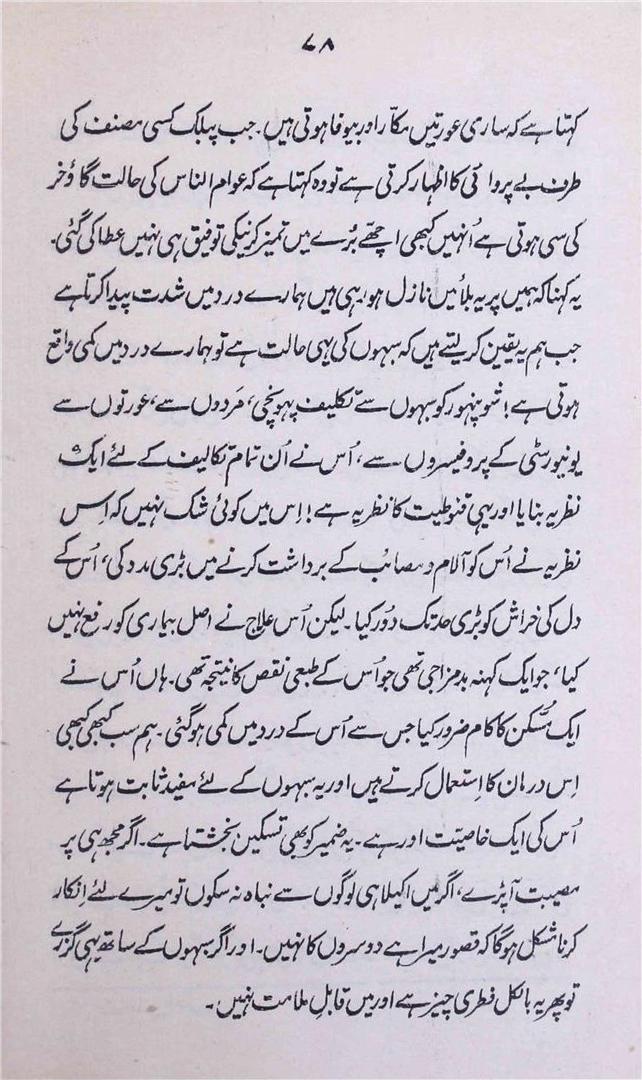 ۷۸
کہتا ہے کہ ساری عورتیں مکّار اور بیوفا ہوتی ہیں۔ جب پبلک کسی مصنف کی
طرف بے پروائی کا اظہار کرتی ہے تو وہ کہتا ہے کہ عوام الناس کی حالت گاؤ خر
کی سی ہوتی ہے اُنہیں کبھی اچھے بُرے میں تمیز کرنیکی توفیق ہی نہیں عطا کی گئی۔
یہ کہنا کہ ہمیں پر یہ بلائیں نازل ہو رہی ہیں ہمارے درد میں شدت پیدا کرتا ہے
جب ہم یہ یقین کر لیتے ہیں کہ سبہوں کی یہی حالت ہے تو ہمارے درد میں کمی واقع
ہوتی ہے! شوپنہور کو سبہوں سے تکلیف پہونچی، مَردوں سے، عورتوں سے
یونیورسٹی کے پروفیسروں سے، اُس نے اُن تمام تکالیف کے لئے ایک
نظریہ بنایا اور یہی قنوطیت کا نظریہ ہے! اِس میں کوئی شک نہیں کہ اِس
نظریہ نے اُس کو آلام و مصائب کے برداشت کرنے میں بڑی مدد کی، اُس کے
دل کی خراش کو بڑی حد تک دُور کیا۔ لیکن اُس علاج نے اصل بیماری کو رفع نہیں
کیا، جو ایک کہنہ بدمزاجی تھی جو اُس کے طبعی نقص کا نتیجہ تھی۔ ہاں اُس نے
ایک مُسکّن کا کام ضرور کیا جس سے اُس کے درد میں کمی ہو گئی۔ ہم سب کبھی کبھی
اِس درمان کا اِستعمال کرتے ہیں اور یہ سبہوں کے لئے مفید ثابت ہوتا ہے
اُس کی ایک خاصیت اور ہے۔ یہ ضمیر کو بھی تسکین بخشتا ہے۔ اگر مجھ ہی پر
مصیبت آپڑے، اگر میں اکیلا ہی لوگوں سے نباہ نہ سکوں تو میرے لئے اِنکار
کرنا مشکل ہوگا کہ قصور میرا ہے دوسروں کا نہیں۔ اور اگر سبہوں کے ساتھ یہی گزرے
تو پھر یہ بالکل فطری چیز ہے اور میں قابلِ ملامت نہیں۔